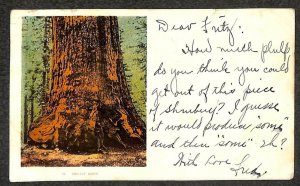 Dear Fritz:
How much phulp
do you think you could
get out of this piece
of shrubery? I guess
it would produce "some"
and then "some" Eh?
With Love